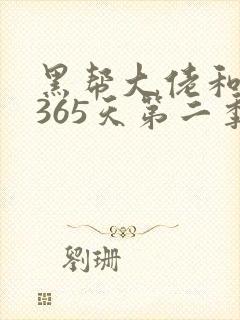 黑帮大佬和
365天第二季
劉珊